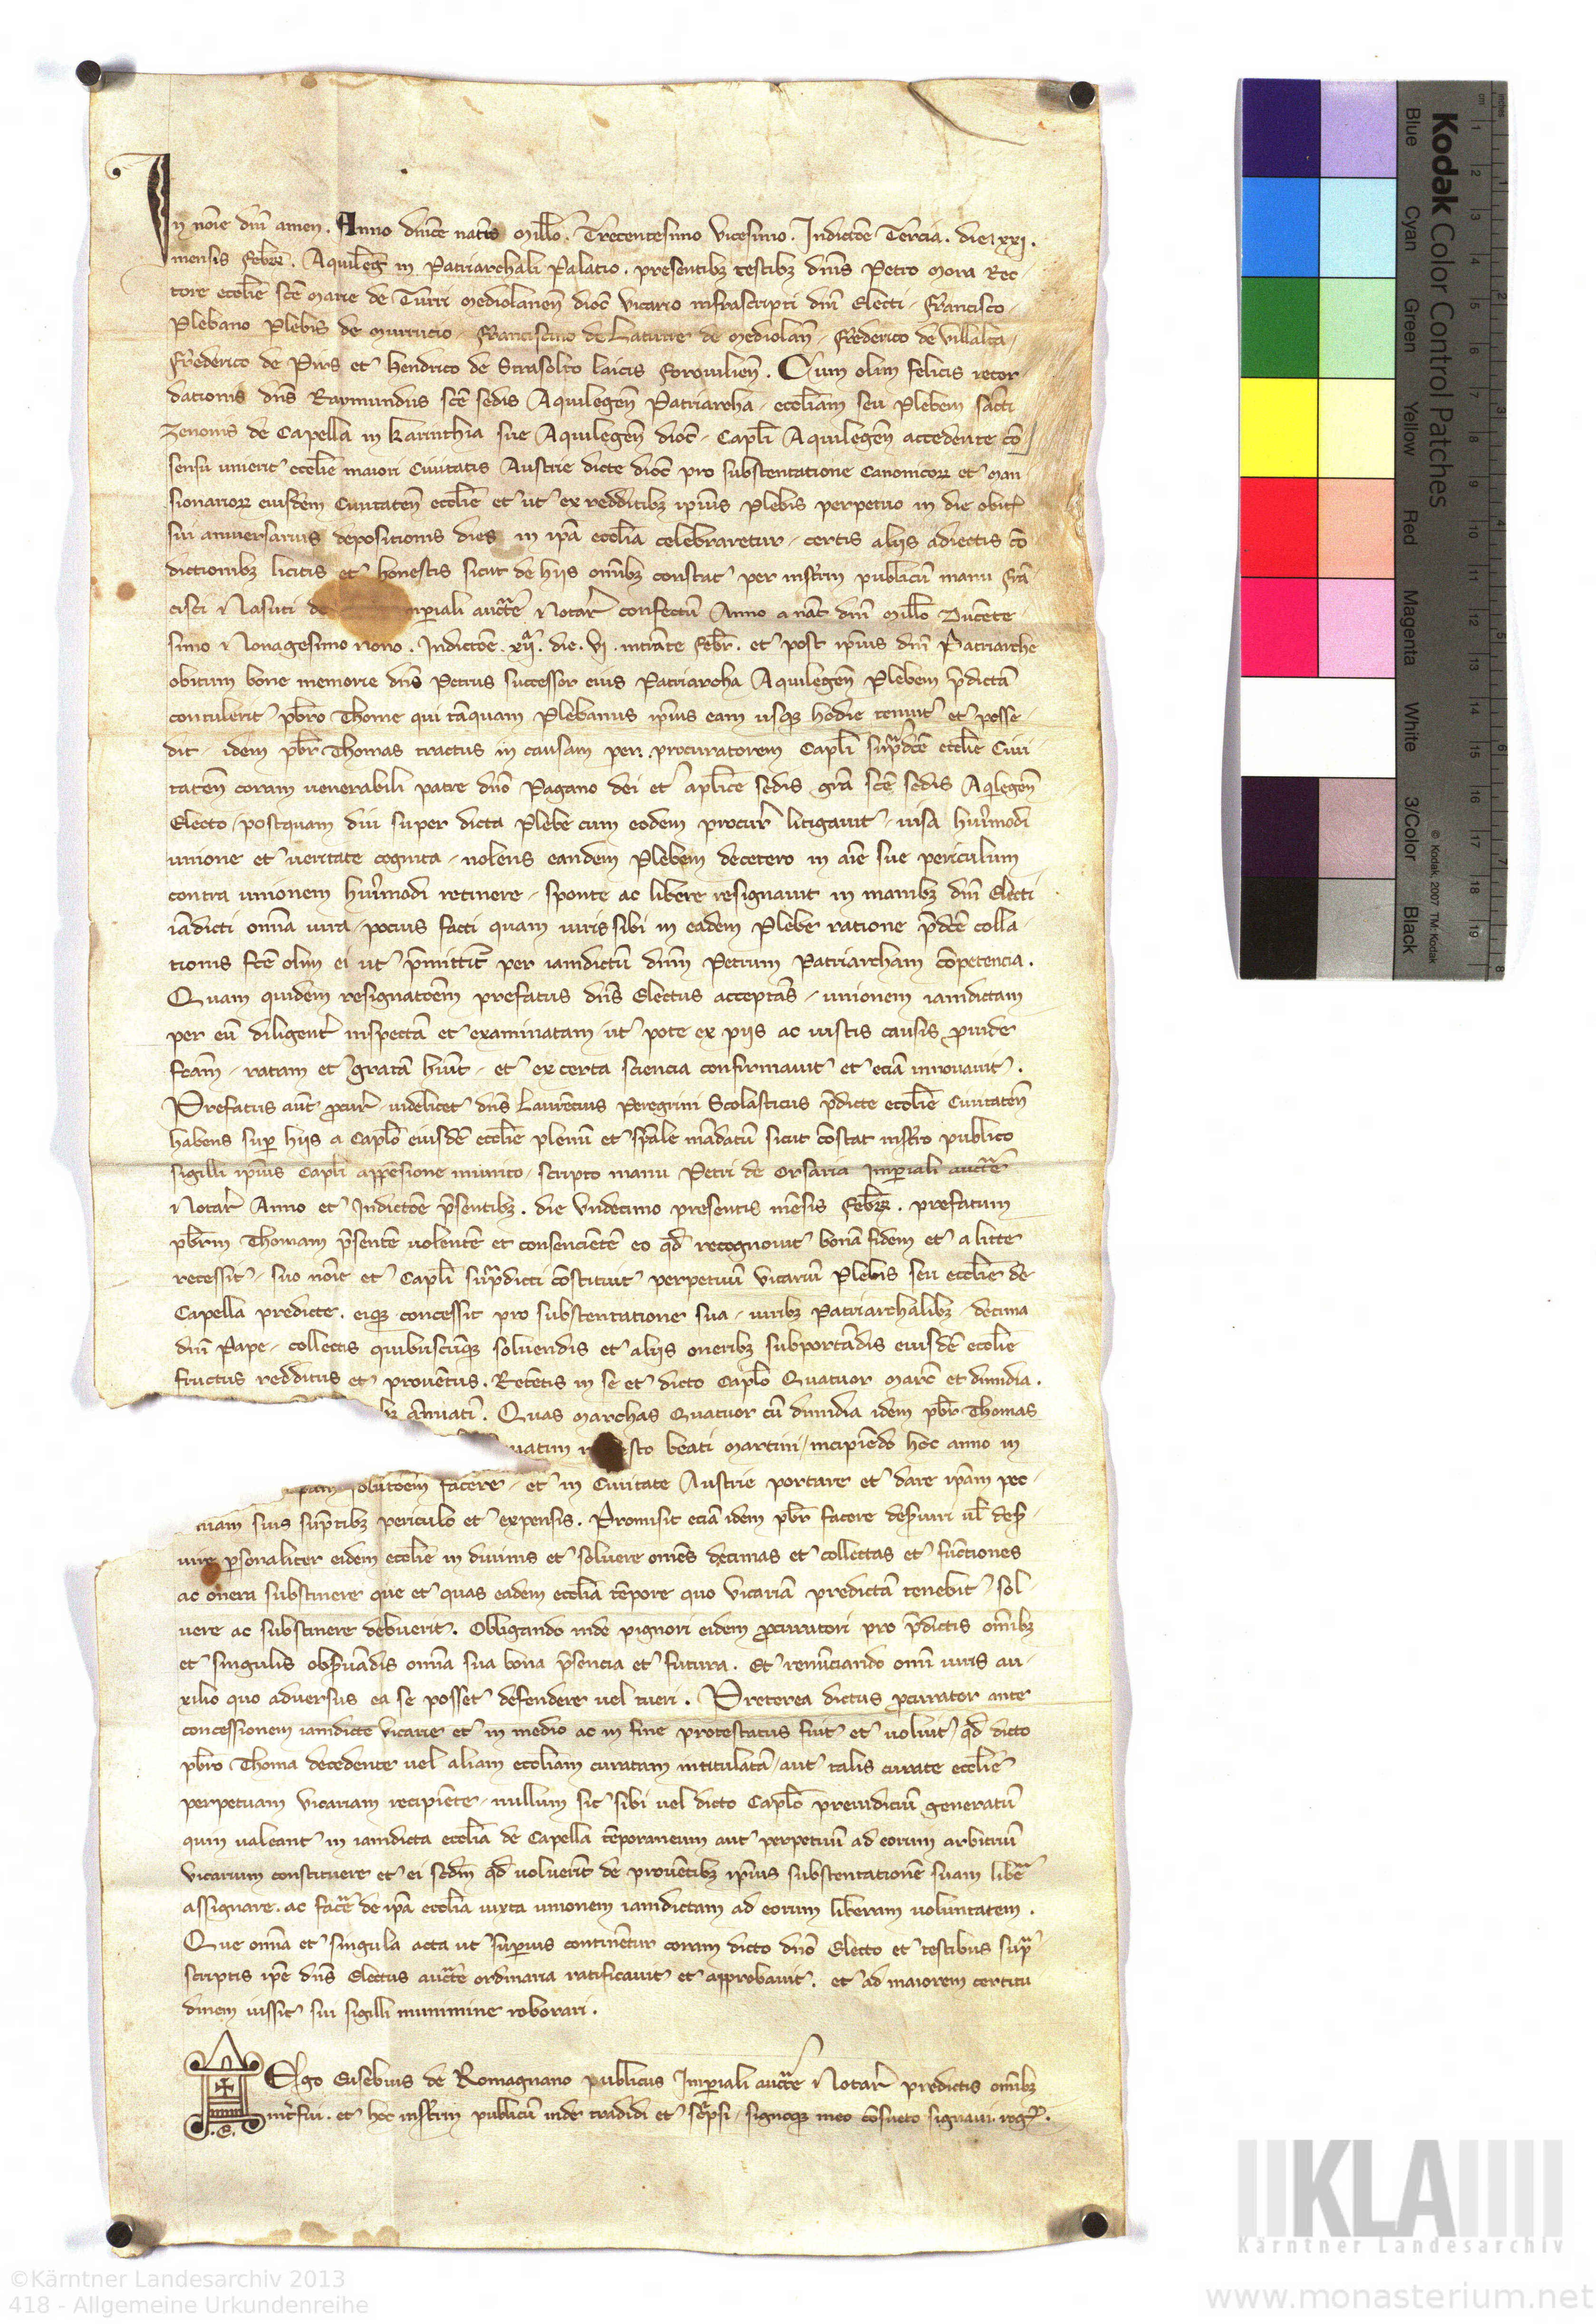 In noīe dnī amen. Anno dnīce natīts Millō. Trecentesimo vicesimo. Indictōe Tercia. die xxj.
mensis Febr. Aquileg̃ in Patriarchali Palatio. presentibꝫ testibꝫ dnīs Petro Mora Rec-
tore ecclīe scē Marie de Turri Mediolanen̄ dioc̄ vicario infrascripti dnī Electi. Francisco
Plebano Plebis de Murucio. Francischino de Laturre de Mediolan̄. Frederico de Villalta.
Frederico de Pirs et Hendrico de Strasolto laicis Foroiulien̄. Cum olim felicis recor-
dationis dns̄ Raymundus scē sedis Aquilegen̄ Patriarcha. ecclīam seu Plebem sancti
Zenonis de Capella in Karinthia sue Aquilegen̄ dioc̄. Caplī Aquilegen̄ accedente cō-
sensu univerit ecclīe maiori Civitatis Austrie dicte dioc̄ pro substentatione Canonicorꝝ et Man-
sionariorꝝ eiusdem Civitaten̄ ecclīe et ut ex redditibꝫ ipīus Plebis perpetuo in die obitꝰ
sui anniversarius depositionis dies in ipā ecclīa celebraretur. certis aliis adiectis cō-
dictionibꝫ licitis et honestis sicut de hiis omībꝫ constat per instrm̄ publicū manu Frā-
cisci Nasuti de imperiali auctꝭte Notar̄ confectū Anno a nat̄ dnī Millō Ducente-
simo Nonagesimo nono. Indictōe. xijᵃ. die. vj. intrāte Febr̄. et post ipīus dnī Patriarche
obitum bone memorie dns̄ Petrus successor eius Patriarcha Aquilegen̄ Plebem p̄dictā
contulerit pbr̄o Thome qui tāquam Plebanus ipīus eam usqꝫ hodie tenuit et posse-
dit. idem pbr̄ Thomas tractus in causam per procuratorem Caplī supᵃdcē ecclīe Civi-
taten̄ coram venerabili patre dnō Pagano dei et aplīce sedis grā scē sedis Aqlegen̄
Electo. postquam diu super dicta Plebe cum eodem procur̄ litigavit. visa huiꝰmodi
unione et veritate cognita. nolens eandem Plebem decetero in aīe sue periculum
contra unionem huiꝰmodi retinere. sponte ac libere resignavit in manibꝫ dnī Electi
iādicti omīa iura. pocius facti quam iuris sibi in eadem Plebe ratione p̄dcē colla-
tionis fcē olim ei ut p̄mittit̄ per iamdictū dnm̄ Petrum Patriarcham cōpetencia.
Quam quidem resignatōem prefatus dns̄ Electus acceptās. unionem iamdictam
per eū diligent̄ inspectā et examinatam ut pote ex piis ac iustis causis provide
fcām. ratam et gratā hūit. et ex certa sciencia confirmavit et eciā innovavit.
Prefatus aūt procur̄ videlicet dns̄ Laurēcius Peregrini Scolasticus p̄dicte ecclīe Civitaten̄
habens sup̄ hiis a Caplō eiusdē ecclīe plenū et spāle mādatū sicut cōstat instrō publico
sigilli ipīus Caplī appēsione munito. scripto manu Petri de Orsaria Imperiali auctꝭte
Notar̄ Anno et Indictōe p̄sentibꝫ. die undecimo presentis mēsis Febr̄. prefatum
pbr̄m Thomam p̄sentē volentē et consencientē eo qd̄ recognovit bonā fidem et a lite
recessit. suo noīe et Caplī supᵃdicti cōstituit perpetuū vicariū Plebis seu ecclīe de
Capella predicte. eiqꝫ concessit pro substentatione sua. iuribꝫ Patriarchalibꝫ. decima
dnī Pape. collectis quibuscūqꝫ solvendis et aliis oneribꝫ subportādis eiusdē ecclīe
fructus redditus et provētus. Retētis in se et dicto Caplō Quatuor Marc̄ et dimidia.
annuatī. Quas Marchas Quatuor cū dimidia idem pbr̄ Thomas
festo beati Martini. incipiēdo hoc anno in
solutōem facere. et in Civitate Austrie portare et dare ipām pec-
uniam suis sūptibꝫ periculo et expensis. Promisit eciā idem pbr̄ facere des̄viri ul̄ des̄-
vire p̄sonaliter eidem ecclīe in divinis et solvere omēs decimas et collectas et fūctiones
ac onera substinere que et quas eadem ecclīa tēpore quo vicariā predictā tenebit. sol-
vere ac substinere debuerit. Obligando inde pignori eidem procuratori pro p̄dictis omībꝫ
et singulis obs̄vādis omīa sua bona p̄sencia et futura. Et renūciando omī iuris au-
xilio quo adversus ea se posset defendere vel tueri. Preterea dictus procurator ante
concessionem iamdicte vicarie et in medio ac in fine protestatus fuit et voluit qd̄ dicto
pbr̄o Thoma decedente vel aliam ecclīam curatam intitulatā aut talis curate ecclīe
perpetuam vicariam recipiēte. nullum sit sibi vel dicto Caplō preiudiciū generatū
quin valeant in iamdicta ecclīa de Capella tēporaneum aut perpetuū ad eorum arbitriū
vicarium constituere et ei scdm̄ qd̄ voluerīt de provētibꝫ ipīus substentationē suam libē
assignare. ac facᵉe de ipā ecclīa iuxta unionem iamdictam ad eorum liberam voluntatem.
Que omīa et singula acta ut sup̄ius continētur coram dicto dnō Electo et testibus supᵃ-
scriptis ipē dns̄ Electus auctꝭte ordinaria ratificavit et approbavit. et ad maiorem certitu-
dinem iussit sui sigilli munimine roborari.
Ego Eusebius de Romagnano publicus Imperiali auctꝭte Notar̄ predictis omībꝫ
int̄fui. et hoc instrm̄ publicū inde tradidi et scᵢpsi. signoqꝫ meo cōsueto signavi rogꝰ.
.E.
Kodak Color Control Patches
Blue Cyan Green Yellow Red Magenta White 3/Color Black
© Kodak, 2007 TM: Kodak
cm 1 2 3 4 5 6 7 8 9 10 11 12 13 14 15 16 17 18 19
inches 1 2 3 4 5 6 7 8
KLA
Kärntner Landesarchiv
©Kärntner Landesarchiv 2013
418 - Allgemeine Urkundenreihe
www.monasterium.net